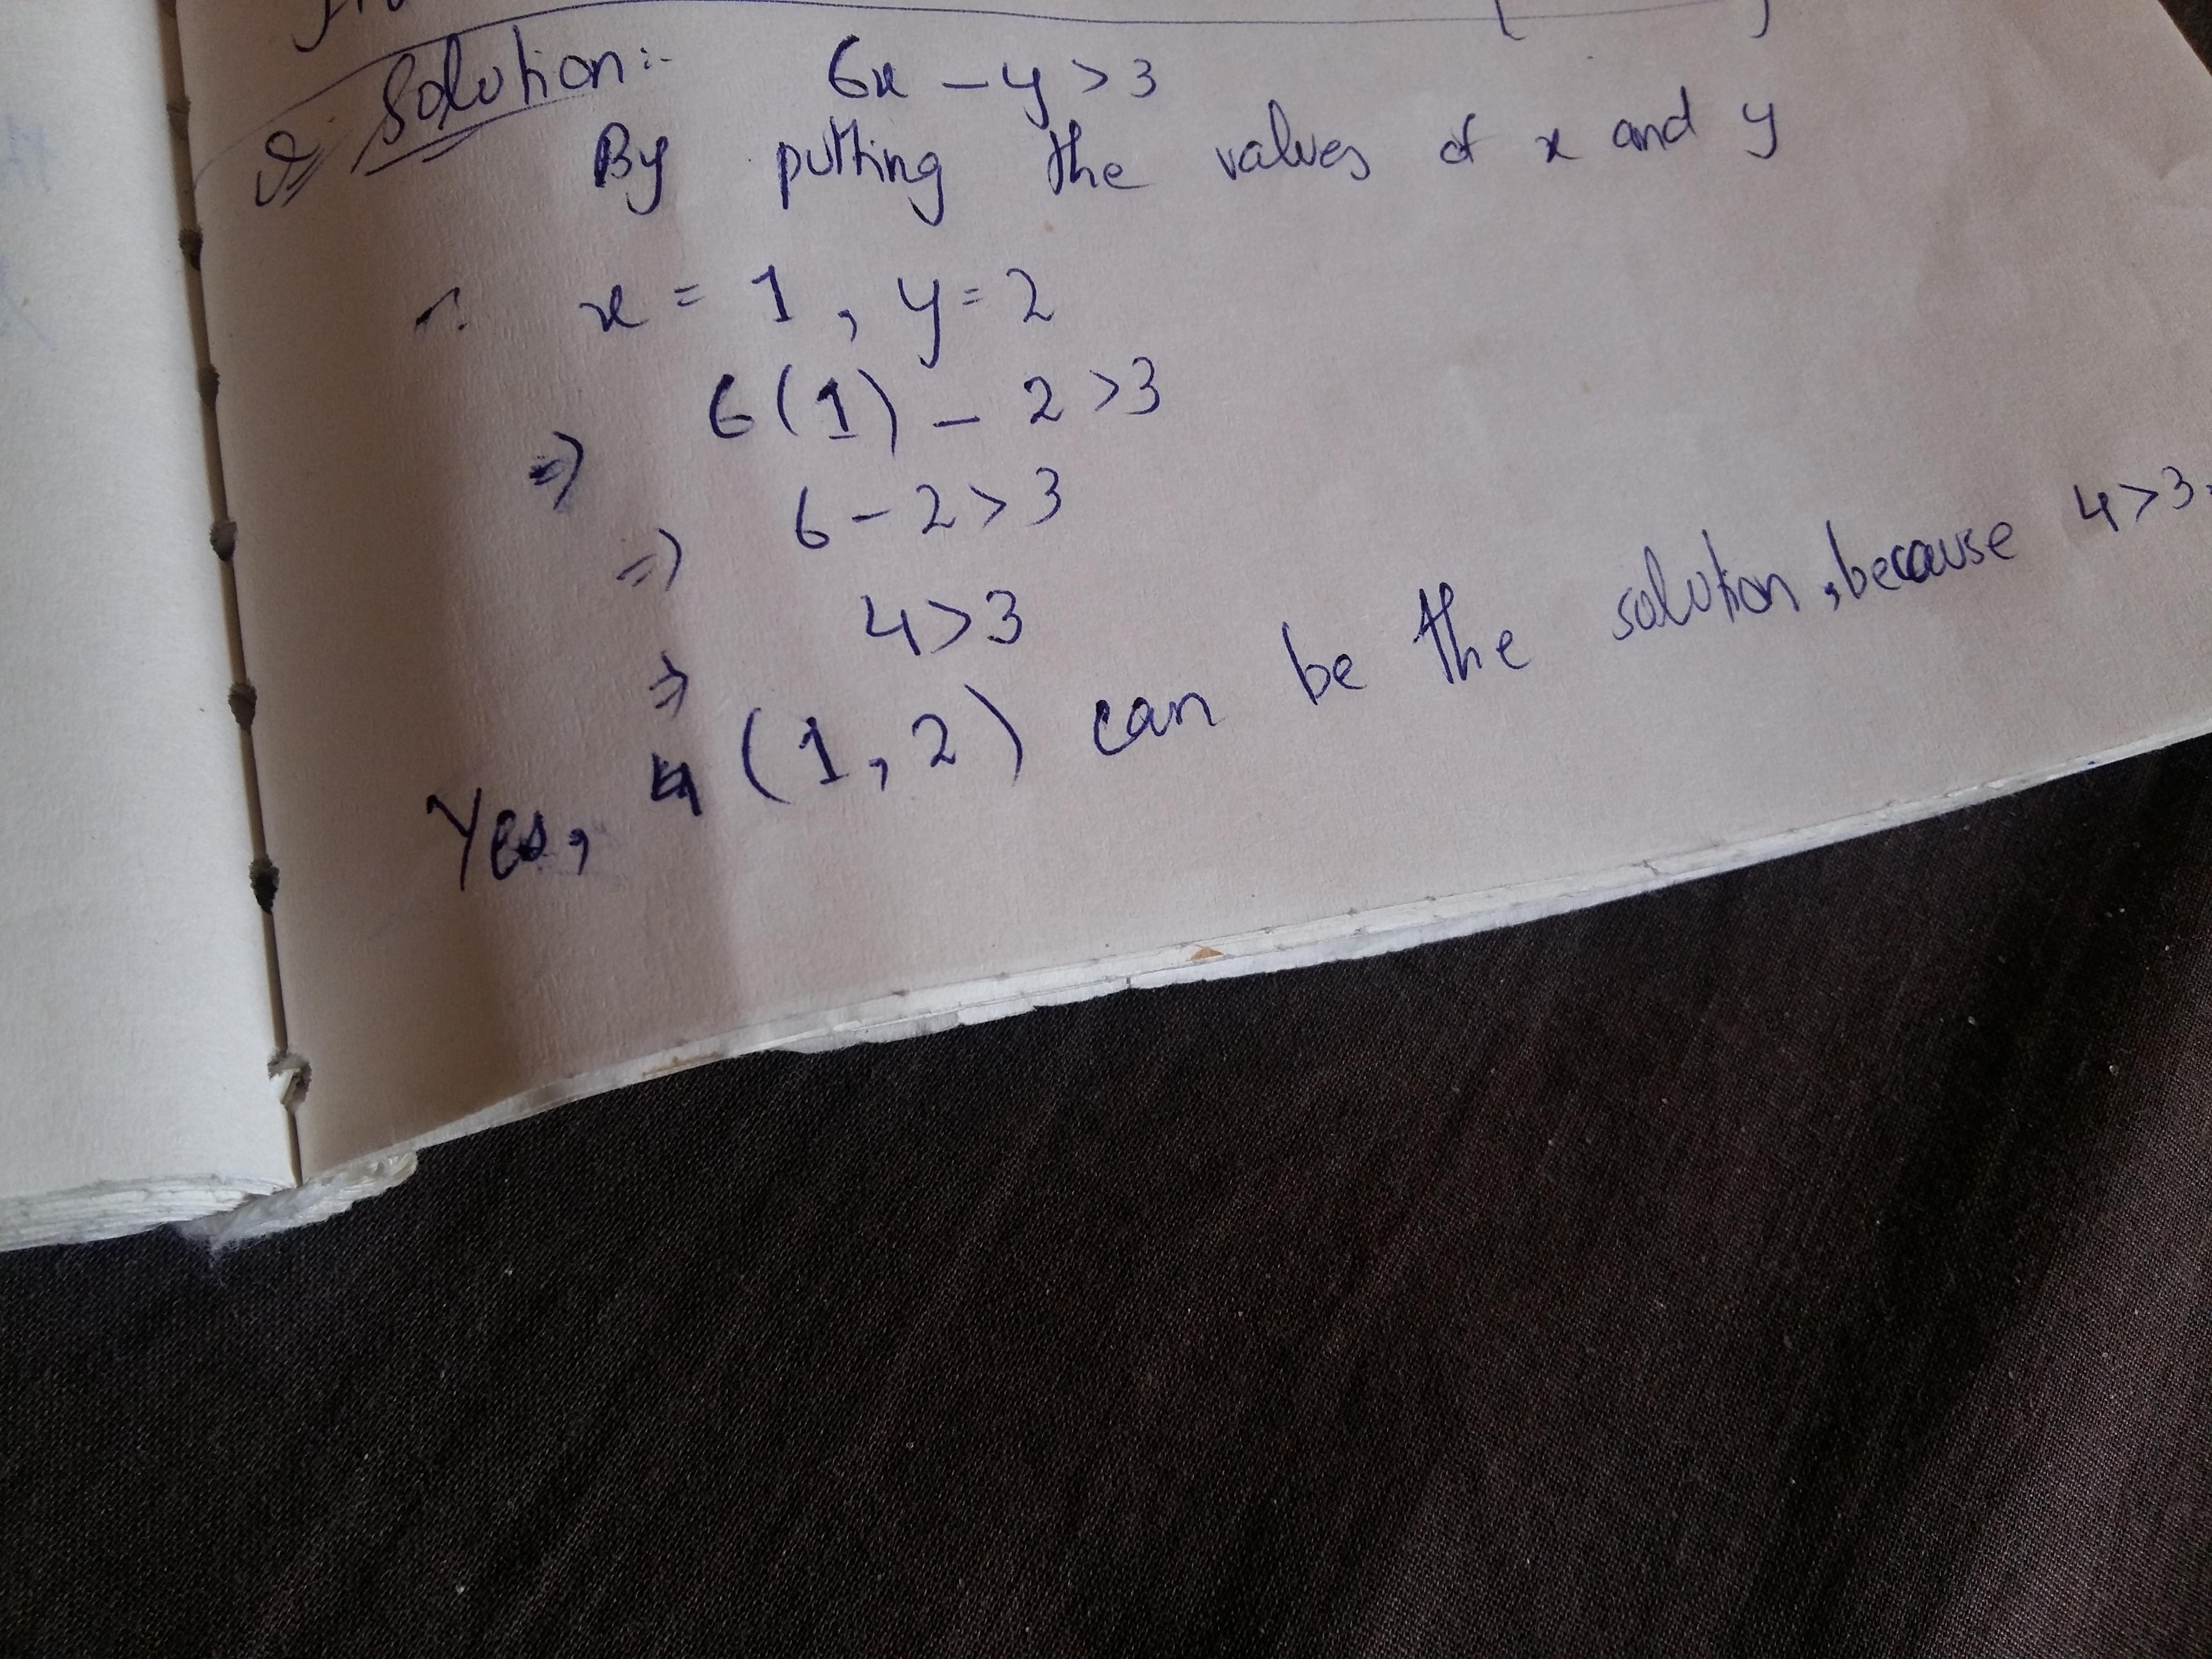 Solution:- 6x - y > 3
By putting the values of x and y
∴ x = 1 , y = 2
⇒ 6(1) - 2 > 3
⇒ 6 - 2 > 3
⇒ 4 > 3
Yes, (1, 2) can be the solution, because 4 > 3.